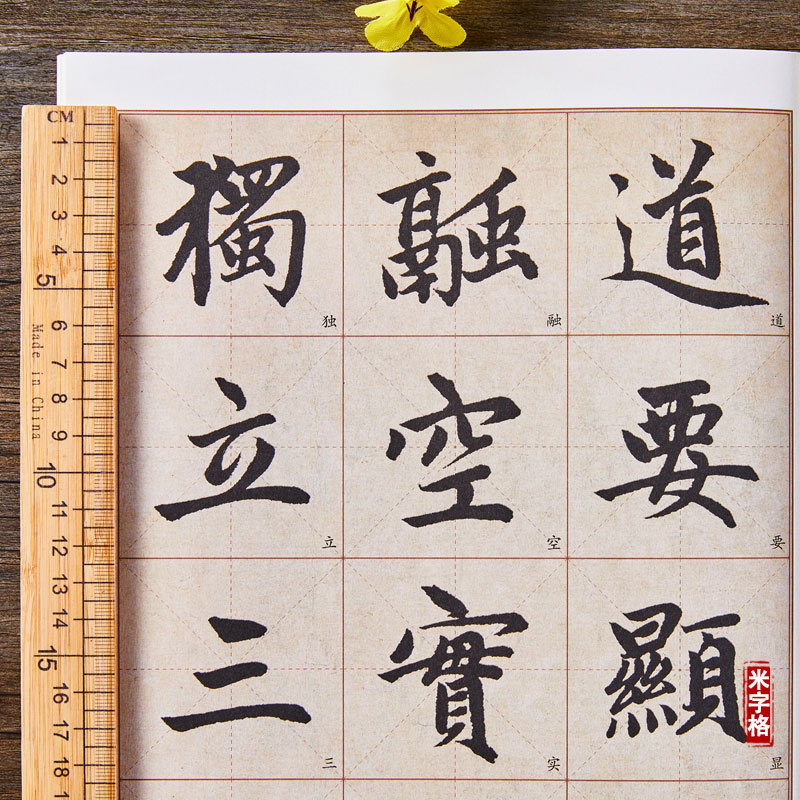 道要顯
道要显
融空實
融空实
獨立三
独立三
米字格
CM
1
2
3
4
5
6
7
8
9
10
11
12
13
14
15
16
17
18
Made in China